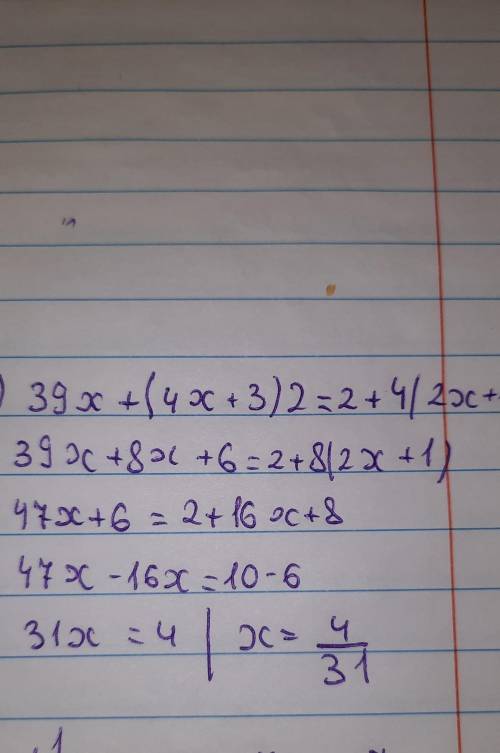 ) 39x + (4x + 3) 2 = 2 + 4(2x +
39x + 8x + 6 = 2 + 8(2x + 1)
47x + 6 = 2 + 16x + 8
47x - 16x = 10 - 6
31x = 4 | x = 4/31